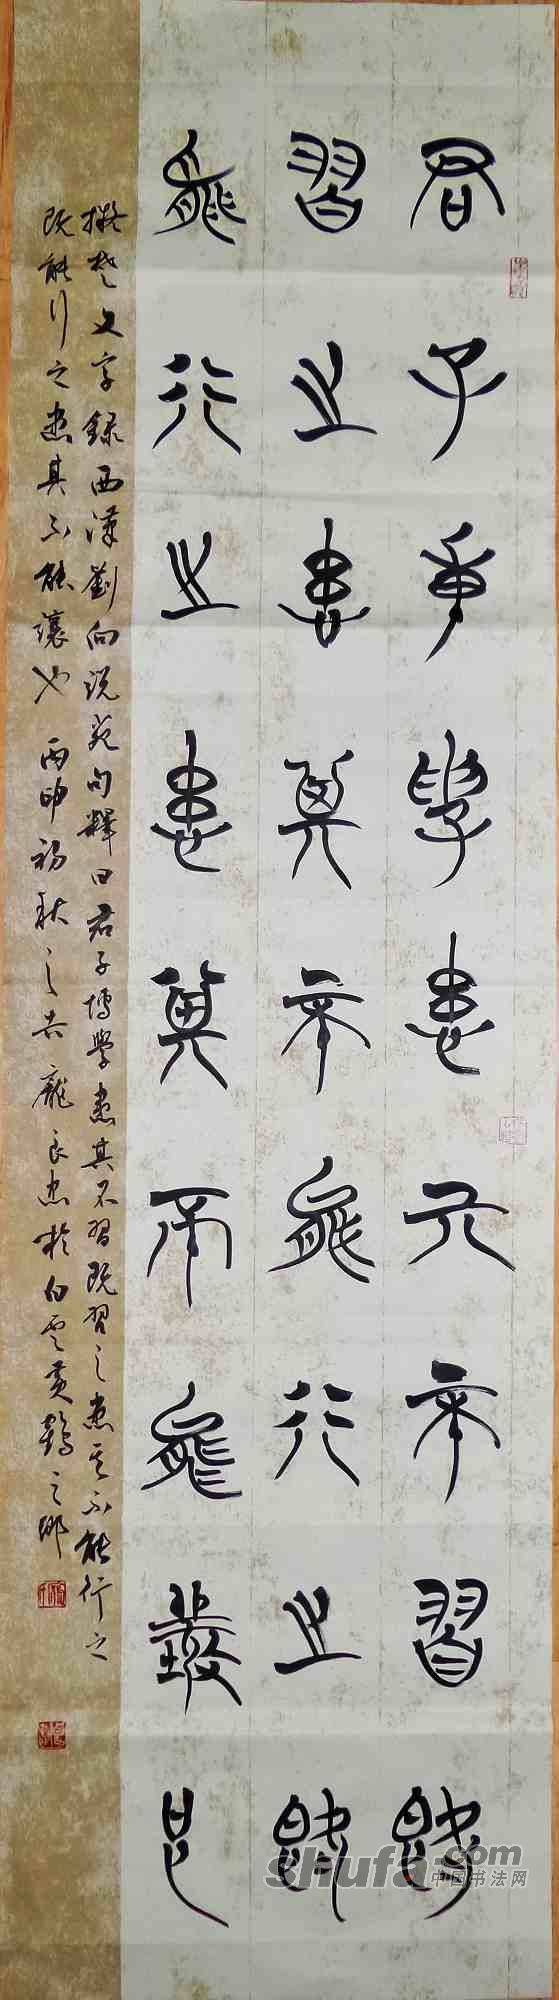 君子尃學患亓不習既
習之患其不能行之既
能行之患其不能讓也
擬楚文字錄西漢劉向說苑句釋曰君子博學患其不習既習之患其不能行之
既能行之患其不能讓也 丙申初秋之吉龐良忠於白雲黃鶴之鄉
shufa.com
中国书法网